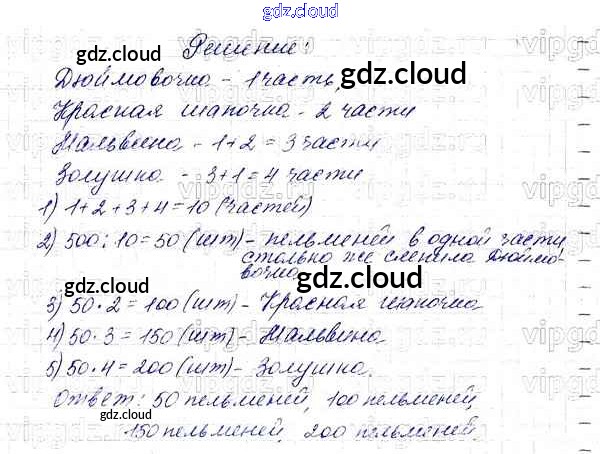 gdz.cloud
Решение:
gdz.cloud
Дюймовочка - 1 часть,
gdz.cloud
Красная шапочка - 2 части
Мальвина - 1+2=3 части
Золушка - 3+1=4 части
gdz.cloud
1) 1+2+3+4=10 (частей)
2) 500:10=50 (шт) - пельменей в одной части,
столько же слепила Дюймо-
вочка
gdz.cloud
gdz.cloud
3) 50·2=100 (шт) - Красная шапочка
4) 50·3=150 (шт) - Мальвина
5) 50·4=200 (шт) - Золушка.
gdz.cloud
Ответ: 50 пельменей, 100 пельменей,
gdz.cloud
150 пельменей, 200 пельменей.